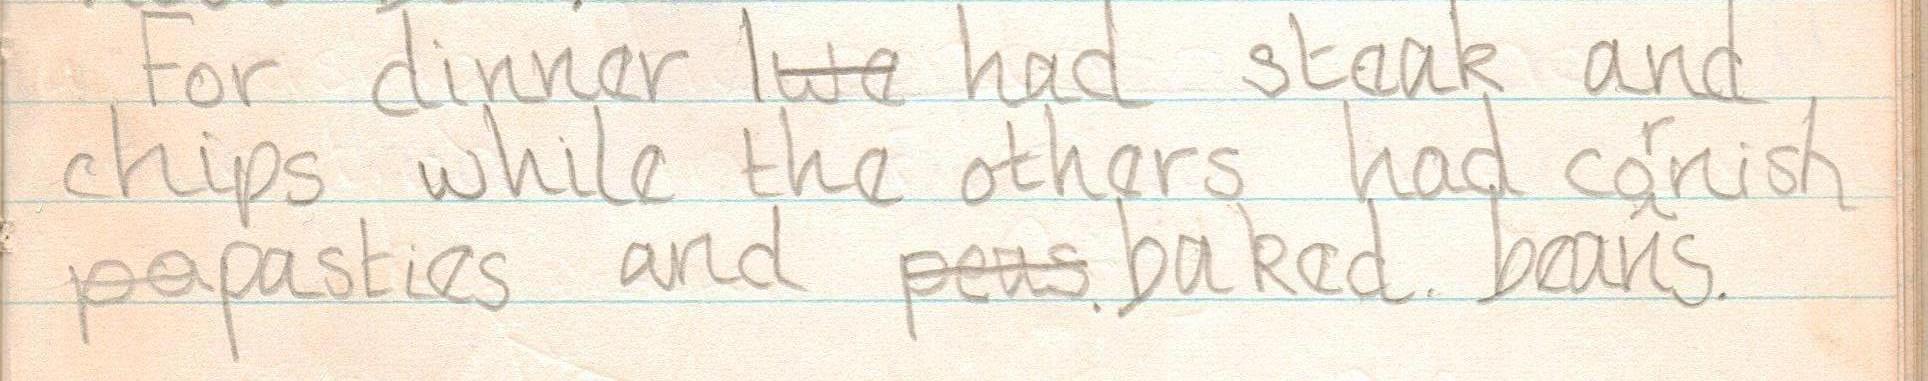 For dinner I ~~we~~ had steak and
chips while the others had cornish
~~pe~~pasties and ~~peas.~~ baked. beans.